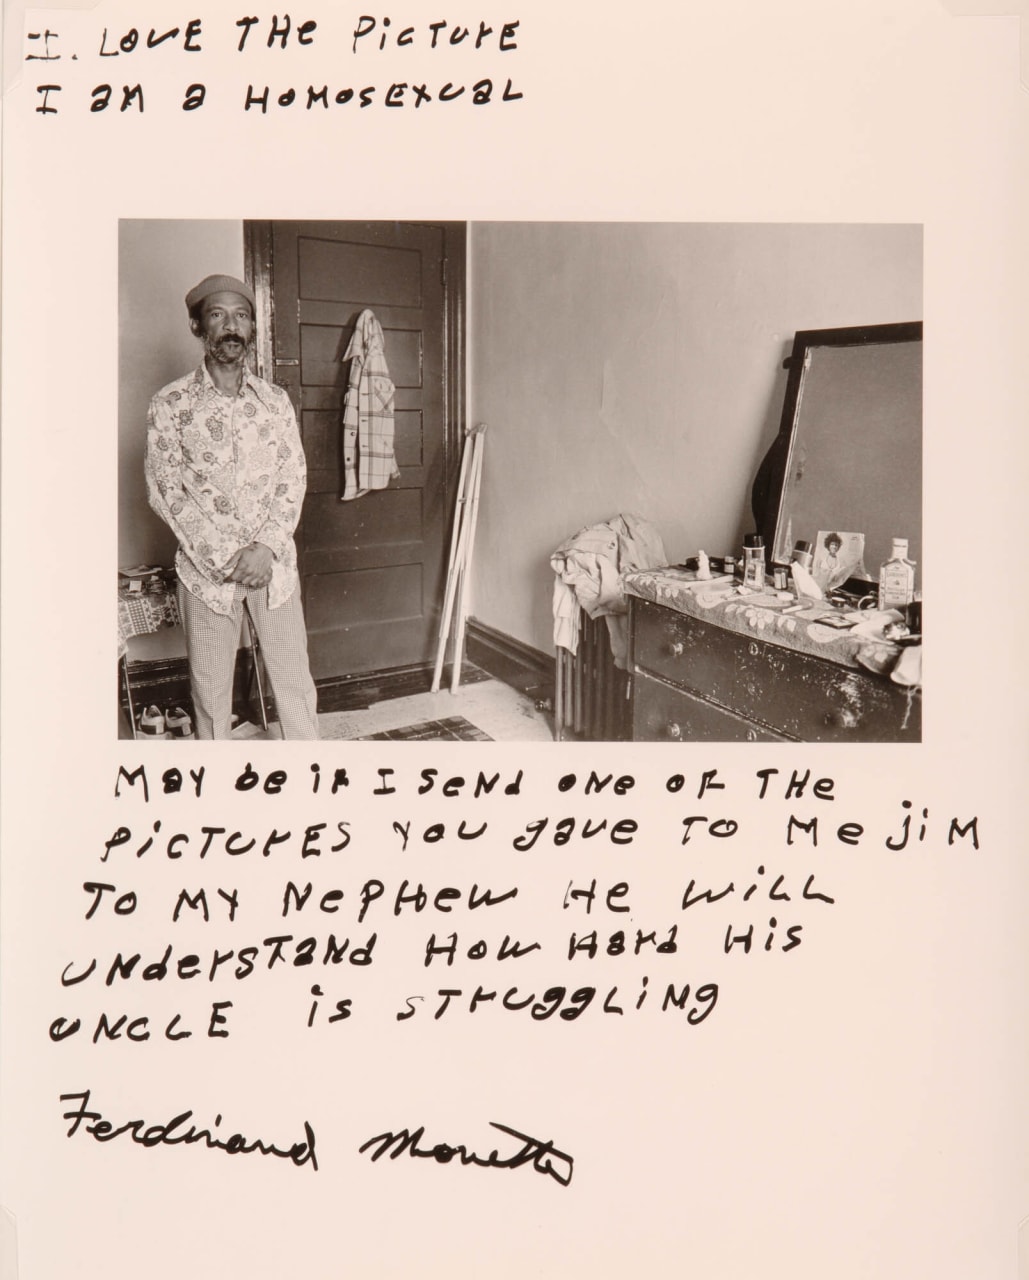 I. LOVE THE PiCTUrE
I am a HOMOSEXUaL
May be if I seNd oNe oF THe
PiCTUrES You gave To Me JiM
To MY NePHew He wiLL
UNdersTaNd How Hard His
UNCLE is STrUggLiNg
Ferdinand Monette